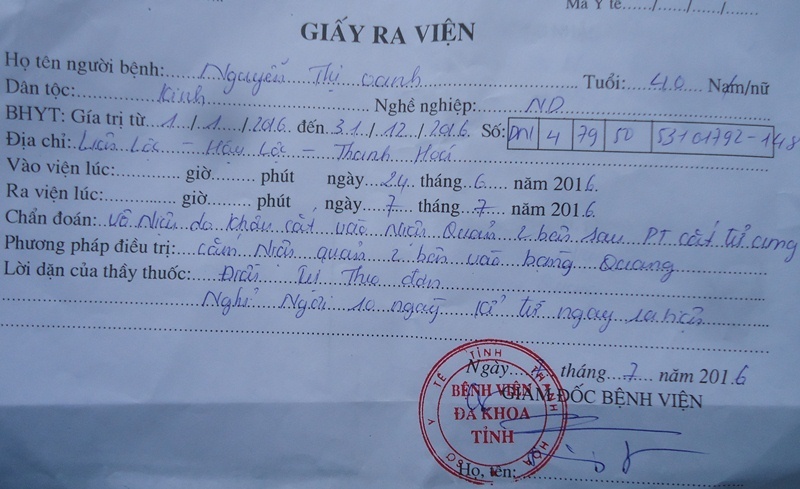 Mã Y tế...../...../...../.....
GIẤY RA VIỆN
Họ tên người bệnh: Nguyễn Thị Oanh Tuổi: 40 Nam/nữ
Dân tộc: Kinh Nghề nghiệp: ND
BHYT: Gía trị từ 1/1/2016 đến 31/12/2016 Số: DN1 4 79 50 53101792-148
Địa chỉ: Liên Lộc - Hậu Lộc - Thanh Hoá
Vào viện lúc: giờ phút ngày 24 tháng 6 năm 2016
Ra viện lúc: giờ phút ngày 7 tháng 7 năm 2016
Chẩn đoán: vô niệu do khâu cắt vào niệu quản 2 bên sau PT cắt tử cung
Phương pháp điều trị: cắm niệu quản 2 bên vào bàng quang
Lời dặn của thầy thuốc: Điều trị theo đơn
Nghỉ ngơi 10 ngày kể từ ngày ra viện
Ngày tháng 7 năm 2016
GIÁM ĐỐC BỆNH VIỆN
BỆNH VIỆN
ĐA KHOA
TỈNH
Họ, tên: